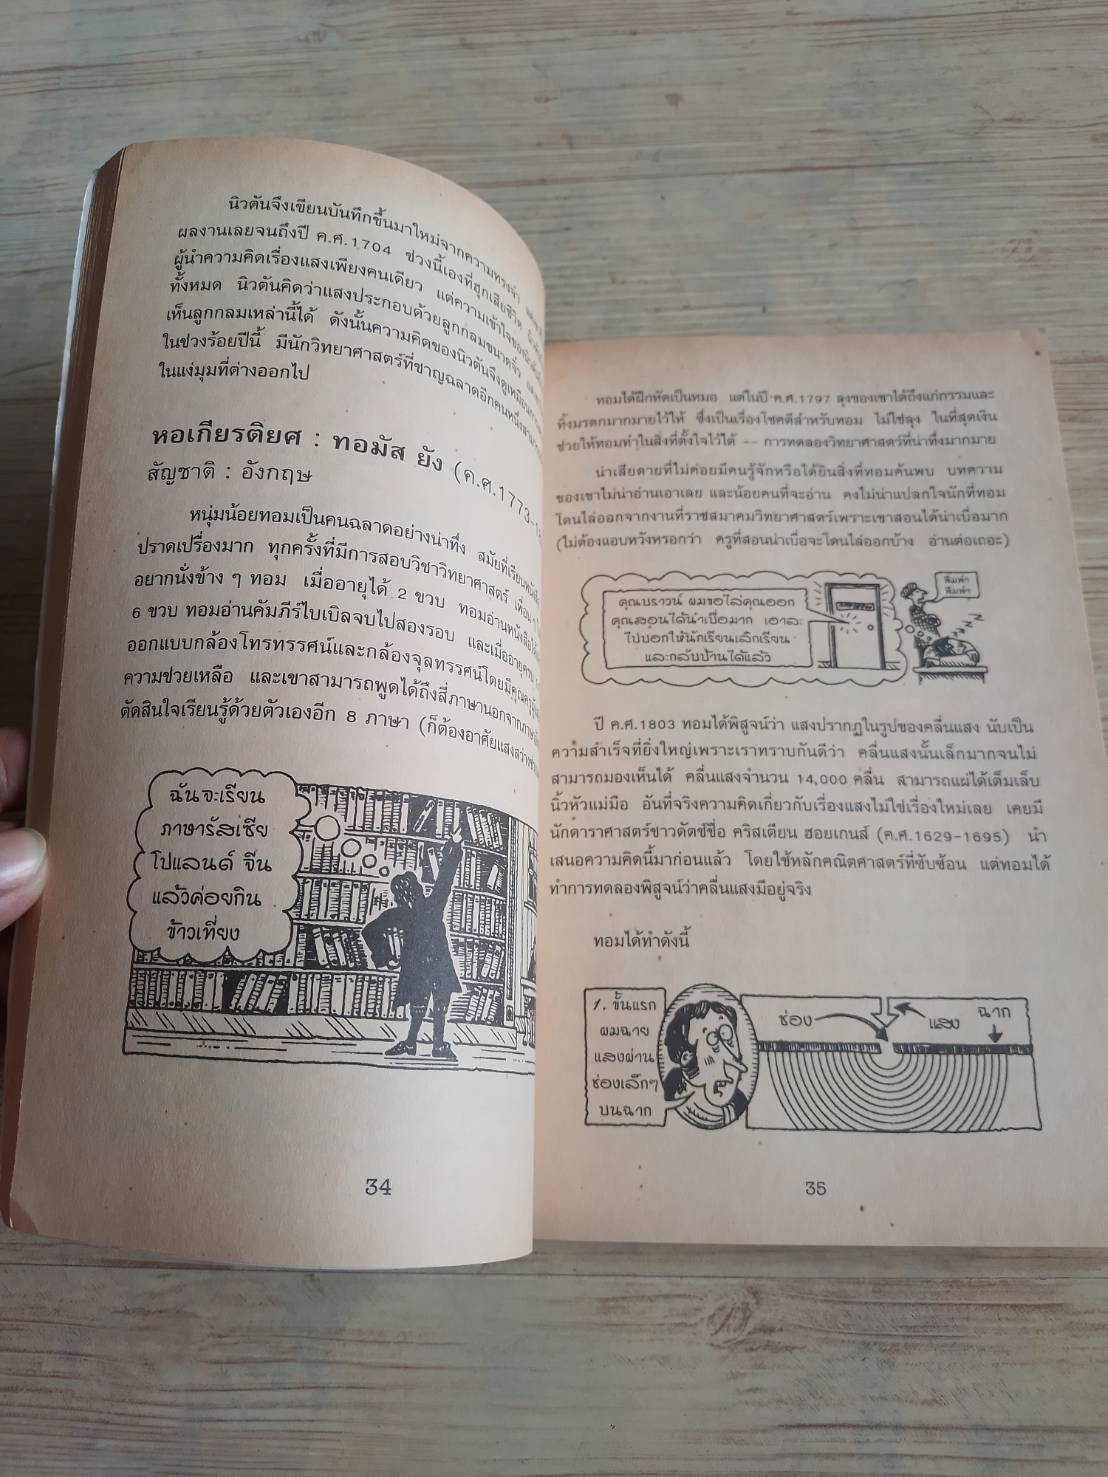 นิวตันจึงเขียนบันทึกขึ้นมาใหม่จากความทรงจำ
ผลงานเลยจนถึงปี ค.ศ.1704 ช่วงนี้เองที่ฮุกเสียชีวิต
ผู้นำความคิดเรื่องแสงเพียงคนเดียว แต่ความเข้าใจของนิวตัน
ทั้งหมด นิวตันคิดว่าแสงประกอบด้วยลูกกลมขนาดจิ๋ว
เห็นลูกกลมเหล่านี้ได้ ดังนั้นความคิดของนิวตันจึงดูเหมือน
ในช่วงร้อยปีนี้ มีนักวิทยาศาสตร์ที่ชาญฉลาดอีกคนหนึ่ง
ในแง่มุมที่ต่างออกไป
หอเกียรติยศ : ทอมัส ยัง (ค.ศ.1773-
สัญชาติ : อังกฤษ
หนุ่มน้อยทอมเป็นคนฉลาดอย่างน่าทึ่ง สมัยที่เรียน
ปราดเปรื่องมาก ทุกครั้งที่มีการสอบวิชาวิทยาศาสตร์ เพื่อน ๆ
อยากนั่งข้าง ๆ ทอม เมื่ออายุได้ 2 ขวบ ทอมอ่านหนังสือได้
6 ขวบ ทอมอ่านคัมภีร์ไบเบิลจบไปสองรอบ และเมื่ออายุครบ
ออกแบบกล้องโทรทรรศน์และกล้องจุลทรรศน์โดยมีคุณครู
ความช่วยเหลือ และเขาสามารถพูดได้ถึงสี่ภาษานอกจากภาษา
ตัดสินใจเรียนรู้ด้วยตัวเองอีก 8 ภาษา (ก็ต้องอาศัยแสงสว่าง
ฉันจะเรียน
ภาษารัสเซีย
โปแลนด์ จีน
แล้วค่อยกิน
ข้าวเที่ยง
34
ทอมได้ฝึกหัดเป็นหมอ แต่ในปี ค.ศ.1797 ลุงของเขาได้ถึงแก่กรรมและ
ทิ้งมรดกมากมายไว้ให้ ซึ่งเป็นเรื่องโชคดีสำหรับทอม ไม่ใช่ลุง ในที่สุดเงิน
ช่วยให้ทอมทำในสิ่งที่ตั้งใจไว้ได้ -- การทดลองวิทยาศาสตร์ที่น่าทึ่งมากมาย
น่าเสียดายที่ไม่ค่อยมีคนรู้จักหรือได้ยินสิ่งที่ทอมค้นพบ บทความ
ของเขาไม่น่าอ่านเอาเลย และน้อยคนที่จะอ่าน คงไม่น่าแปลกใจนักที่ทอม
โดนไล่ออกจากงานที่ราชสมาคมวิทยาศาสตร์เพราะเขาสอนได้น่าเบื่อมาก
(ไม่ต้องแอบหวังหรอกว่า ครูที่สอนน่าเบื่อจะโดนไล่ออกบ้าง อ่านต่อเถอะ)
คุณบราวน์ ผมขอไล่คุณออก
คุณสอนได้น่าเบื่อมาก เอาละ
ไปบอกให้นักเรียนเลิกเรียน
และกลับบ้านได้แล้ว
พึมพำ
พึมพำ
ปี ค.ศ.1803 ทอมได้พิสูจน์ว่า แสงปรากฏในรูปของคลื่นแสง นับเป็น
ความสำเร็จที่ยิ่งใหญ่เพราะเราทราบกันดีว่า คลื่นแสงนั้นเล็กมากจนไม่
สามารถมองเห็นได้ คลื่นแสงจำนวน 14,000 คลื่น สามารถแผ่ได้เต็มเล็บ
นิ้วหัวแม่มือ อันที่จริงความคิดเกี่ยวกับเรื่องแสงไม่ใช่เรื่องใหม่เลย เคยมี
นักดาราศาสตร์ชาวดัตช์ชื่อ คริสเตียน ฮอยเกนส์ (ค.ศ.1629-1695) นำ
เสนอความคิดนี้มาก่อนแล้ว โดยใช้หลักคณิตศาสตร์ที่ซับซ้อน แต่ทอมได้
ทำการทดลองพิสูจน์ว่าคลื่นแสงมีอยู่จริง
ทอมได้ทำดังนี้
1. ขั้นแรก
ผมฉาย
แสงผ่าน
ช่องเล็กๆ
บนฉาก
ช่อง
แสง
ฉาก
35